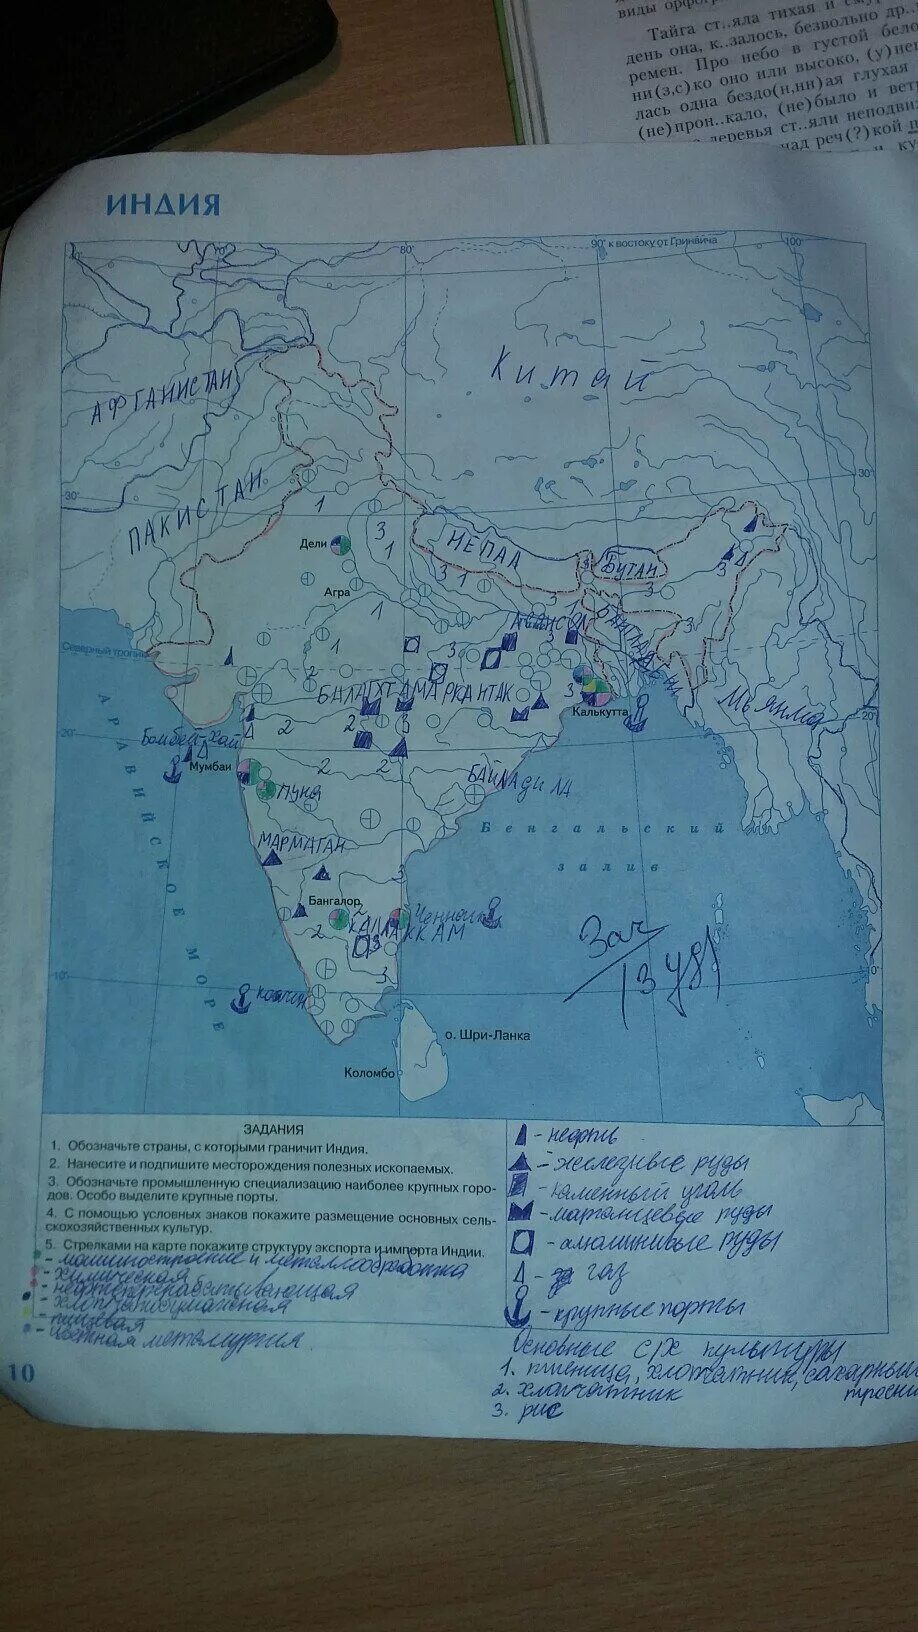 виды орфогр
Тайга ст..яла тихая и
день она, к..залось, безвольно др..
ремен. Про небо в густой бело
ни(з,с)ко оно или высоко, (у)не
лась одна бездо(н,нн)ая глухая
(не)прон..кало, (не)было и вет
деревья ст..яли неподви
над реч(?)кой
ИНДИЯ
70°
80°
90° к востоку от Гринвича
100°
Китай
АФГАНИСТАН
30°
30°
ПАКИСТАН
1
3
1
Дели
НЕПАЛ
БУТАН
3
3 1
3
3
Агра
1
1
1
3
3
3
Северный тропик
2
БАЛАГХТАМАРКАНТАК
3
Калькутта
Мьянма
20°
20°
2
2
2
3
Бомбей-Хай
Мумбаи
2
2
Пуна
БАЙЛАДИЛА
АРАВИЙСКОЕ МОРЕ
Бенгальский
залив
МАРМАГАН
3
Бангалор
2
Ченнаи
2
3
Зач
13 уд
3
10°
10°
Кочин
о. Шри-Ланка
Коломбо
ЗАДАНИЯ
1. Обозначьте страны, с которыми граничит Индия.
2. Нанесите и подпишите месторождения полезных ископаемых.
3. Обозначьте промышленную специализацию наиболее крупных горо-
дов. Особо выделите крупные порты.
4. С помощью условных знаков покажите размещение основных сель-
скохозяйственных культур.
5. Стрелками на карте покажите структуру экспорта и импорта Индии.
- машиностроение и металлообработка
- химическая
- нефтеперерабатывающая
- хлопчатобумажная
- пищевая
- цветная металургия.
- нефть
- железные руды
- каменный уголь
- марганцевые руды
- алюминивые руды
- газ
- крупные порты
Основные с/х культуры
1. пшеница, хлопчатник, сахарный
тростн
2. хлопчатник
3. рис
10